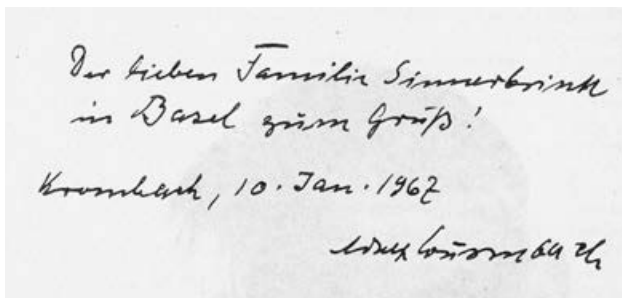 Der lieben Familie Sinnerbrink
in Basel zum Gruß!
Krombach, 10. Jan. 1967
Adolf Wurmbach